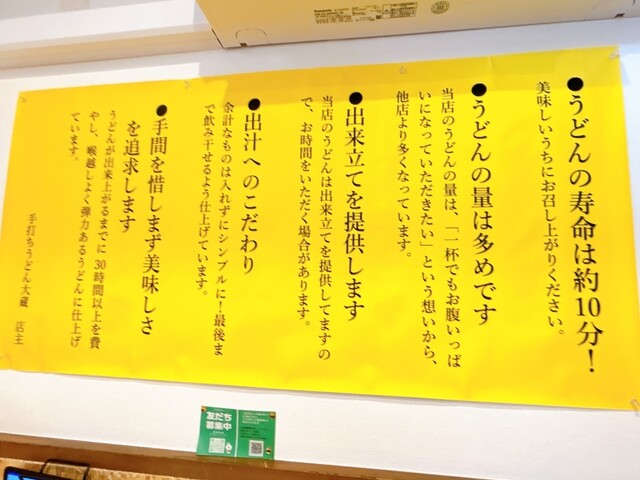 ●うどんの寿命は約10分！
美味しいうちにお召し上がりください。
●うどんの量は多めです
当店のうどんの量は、「一杯でもお腹いっぱ
いになっていただきたい」という想いから、
他店より多くなっています。
●出来立てを提供します
当店のうどんは出来立てを提供してますの
で、お時間をいただく場合があります。
●出汁へのこだわり
余計なものは入れずにシンプルに！最後ま
で飲み干せるよう仕上げています。
●手間を惜しまず美味しさ
を追求します
うどんが出来上がるまでに30時間以上を費
やし、喉越しよく弾力あるうどんに仕上げ
ています。
手打ちうどん大蔵 店主
Panasonic
友だち
募集中